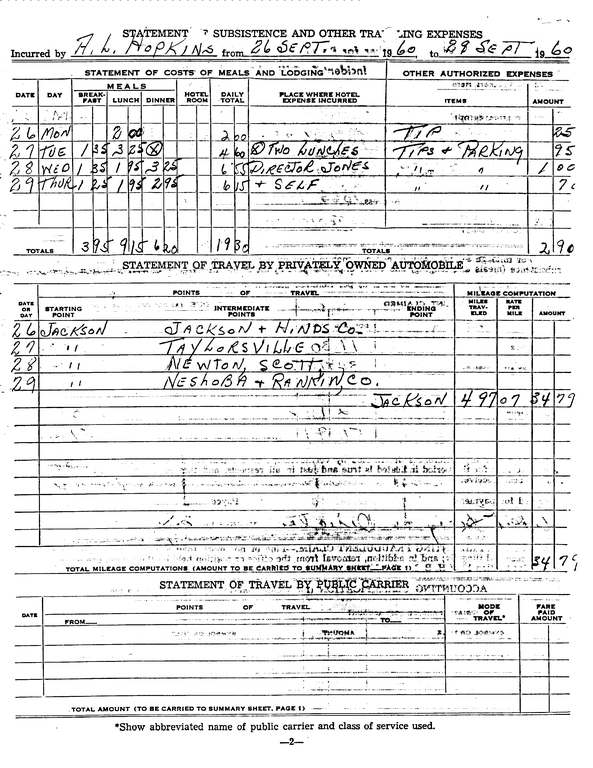 STATEMENT SUBSISTENCE AND OTHER TRA LING EXPENSES
Incurred by A. L. HOPKINS from 26 SEPT. 1960 to 29 SEPT 1960
STATEMENT OF COSTS OF MEALS AND LODGING OTHER AUTHORIZED EXPENSES
MEALS
DATE DAY BREAK-FAST LUNCH DINNER HOTEL ROOM DAILY TOTAL PLACE WHERE HOTEL EXPENSE INCURRED ITEMS AMOUNT
26 MON 2 00 2 00 TIP 25
27 TUE 1 35 3 25 ⊗ 4 60 ⊗ TWO LUNCHES TIPS + PARKING 95
28 WED 1 35 1 95 3 25 6 55 DIRECTOR JONES " " 1 00
29 THUR 1 25 1 95 2 95 6 15 + SELF " " 70
TOTALS 3 95 9 15 6 20 19 30 TOTALS 2 90
STATEMENT OF TRAVEL BY PRIVATELY OWNED AUTOMOBILE
POINTS OF TRAVEL MILEAGE COMPUTATION
DATE OR DAY STARTING POINT INTERMEDIATE POINTS ENDING POINT MILES TRAV-ELED RATE PER MILE AMOUNT
26 JACKSON JACKSON + HINDS CO.
27 " TAYLORSVILLE
28 " NEWTON, SCOTT,
29 " NESHOBA + RANKIN CO.
JACKSON 497 07 34 79
TOTAL MILEAGE COMPUTATIONS (AMOUNT TO BE CARRIED TO SUMMARY SHEET, PAGE 1) 34 79
STATEMENT OF TRAVEL BY PUBLIC CARRIER
DATE POINTS OF TRAVEL MODE OF TRAVEL* FARE PAID AMOUNT
FROM TO
TOTAL AMOUNT (TO BE CARRIED TO SUMMARY SHEET, PAGE 1)
*Show abbreviated name of public carrier and class of service used.
—2—